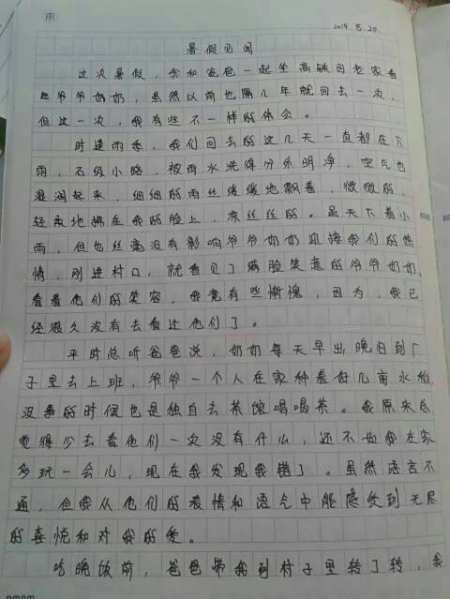 2014.8.20
暑假见闻
这次暑假，我和爸爸一起坐高铁回老家看
望爷爷奶奶，虽然以前也隔几年就回去一次，
但这一次，我有些不一样的体会。
时逢雨季，我们回去的这几天一直都在下
雨，石级小路，被雨水洗得分外明净，空气也
湿润起来，细细的雨丝缓缓地飘着，微微的，
轻柔地拂在我的脸上，凉丝丝的。虽天下着小
雨，但也丝毫没有影响爷爷奶奶迎接我们的热
情，刚进村口，就看见了满脸笑意的爷爷奶奶，
看着他们的笑容，我竟有些惭愧，因为，我已
经很久没有去看过他们了。
平时总听爸爸说，奶奶每天早出晚归到厂
子里去上班，爷爷一个人在家种着好几亩水稻
没事的时候也是独自去茶馆喝喝茶。我原来总
觉得少去看他们一次没有什么，还不如我在家
多玩一会儿，现在我发现我错了。虽然语言不
通，但我从他们的表情和语气中能感受到无尽
的喜悦和对我的爱。
吃晚饭前，爸爸带我到村子里转了转，我